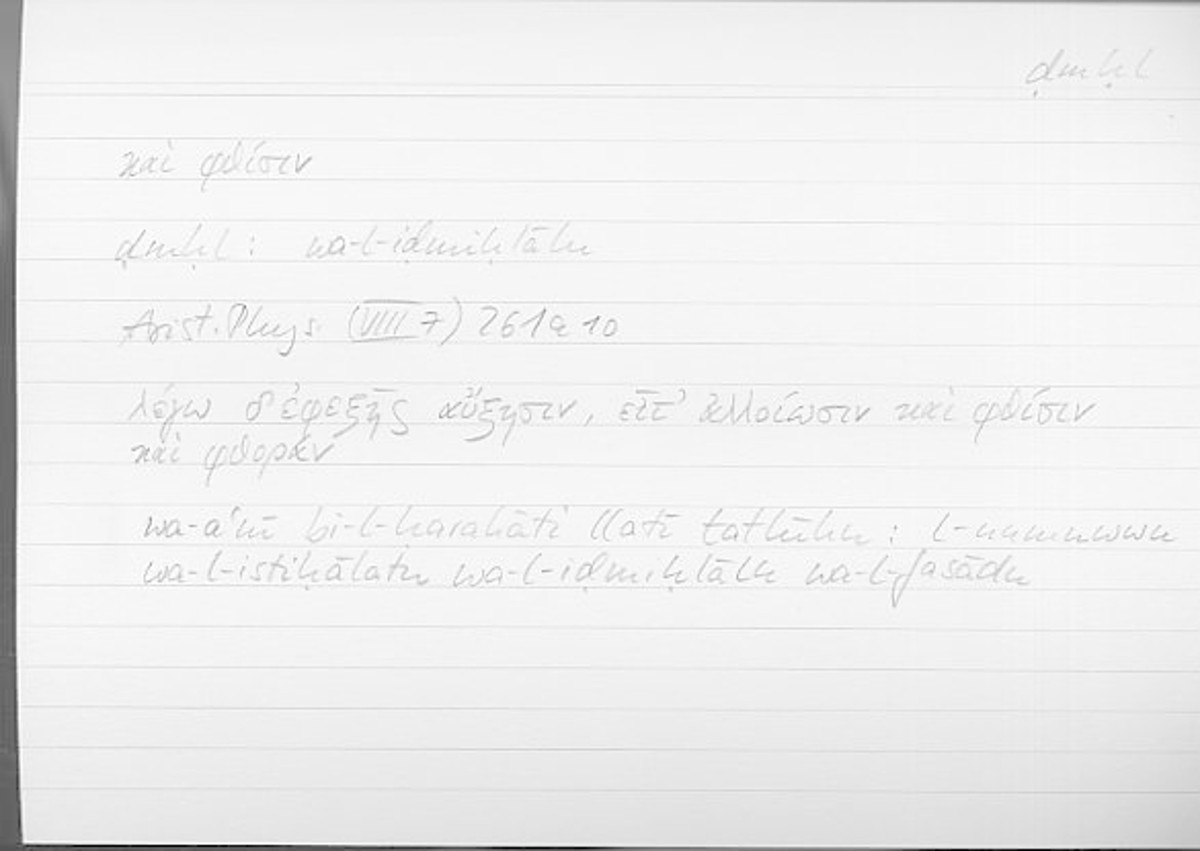 ḍmḥl
καὶ φθίσιν
ḍmḥl: wa-l-iḍmiḥlālu
Arist. Phys. (VIII 7) 261a10
λέγω δ' ἐφεξῆς αὔξησιν, εἶτ' ἀλλοίωσιν καὶ φθίσιν
καὶ φθοράν
wa-aʿnī bi-l-ḥarakāti llatī tatlūhu: l-numuwwu
wa-l-istiḥālatu wa-l-iḍmiḥlālu wa-l-fasādu